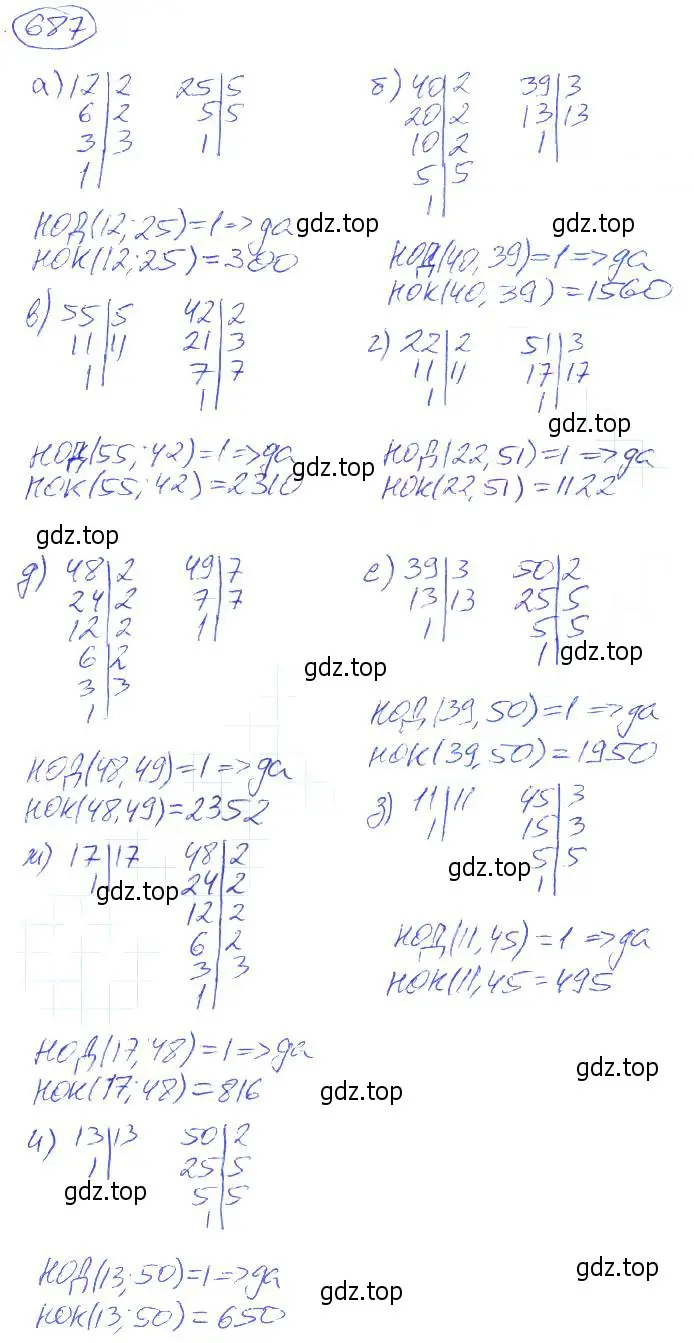 687
а) 12|2 25|5
6|2 5|5
3|3 1|
1|
НОД(12; 25)=1=>да
НОК(12; 25)=300
б) 40|2 39|3
20|2 13|13
10|2 1|
5|5
1|
НОД(40, 39)=1=>да
НОК(40, 39)=1560
в) 55|5 42|2
11|11 21|3
1| 7|7
1|
НОД(55; 42)=1=>да
НОК(55; 42)=2310
г) 22|2 51|3
11|11 17|17
1| 1|
НОД(22, 51)=1=>да
НОК(22, 51)=1122
д) 48|2 49|7
24|2 7|7
12|2 1|
6|2
3|3
1|
НОД(48, 49)=1=>да
НОК(48, 49)=2352
е) 39|3 50|2
13|13 25|5
1| 5|5
1|
НОД(39, 50)=1=>да
НОК(39, 50)=1950
ж) 17|17 48|2
1| 24|2
12|2
6|2
3|3
1|
НОД(17; 48)=1=>да
НОК(17; 48)=816
з) 11|11 45|3
1| 15|3
5|5
1|
НОД(11, 45)=1=>да
НОК(11, 45=495
и) 13|13 50|2
1| 25|5
5|5
1|
НОД(13; 50)=1=>да
НОК(13; 50)=650
gdz.top
gdz.top
gdz.top
gdz.top
gdz.top
gdz.top
gdz.top
gdz.top
gdz.top
gdz.top
gdz.top
gdz.top
gdz.top
gdz.top